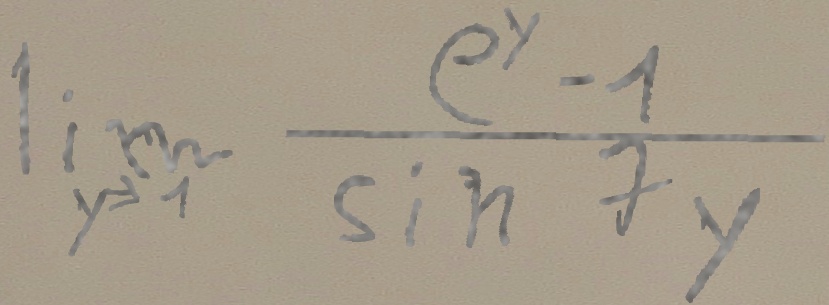 \lim_{y \to 1} \frac{e^y - 1}{\sin 7y}